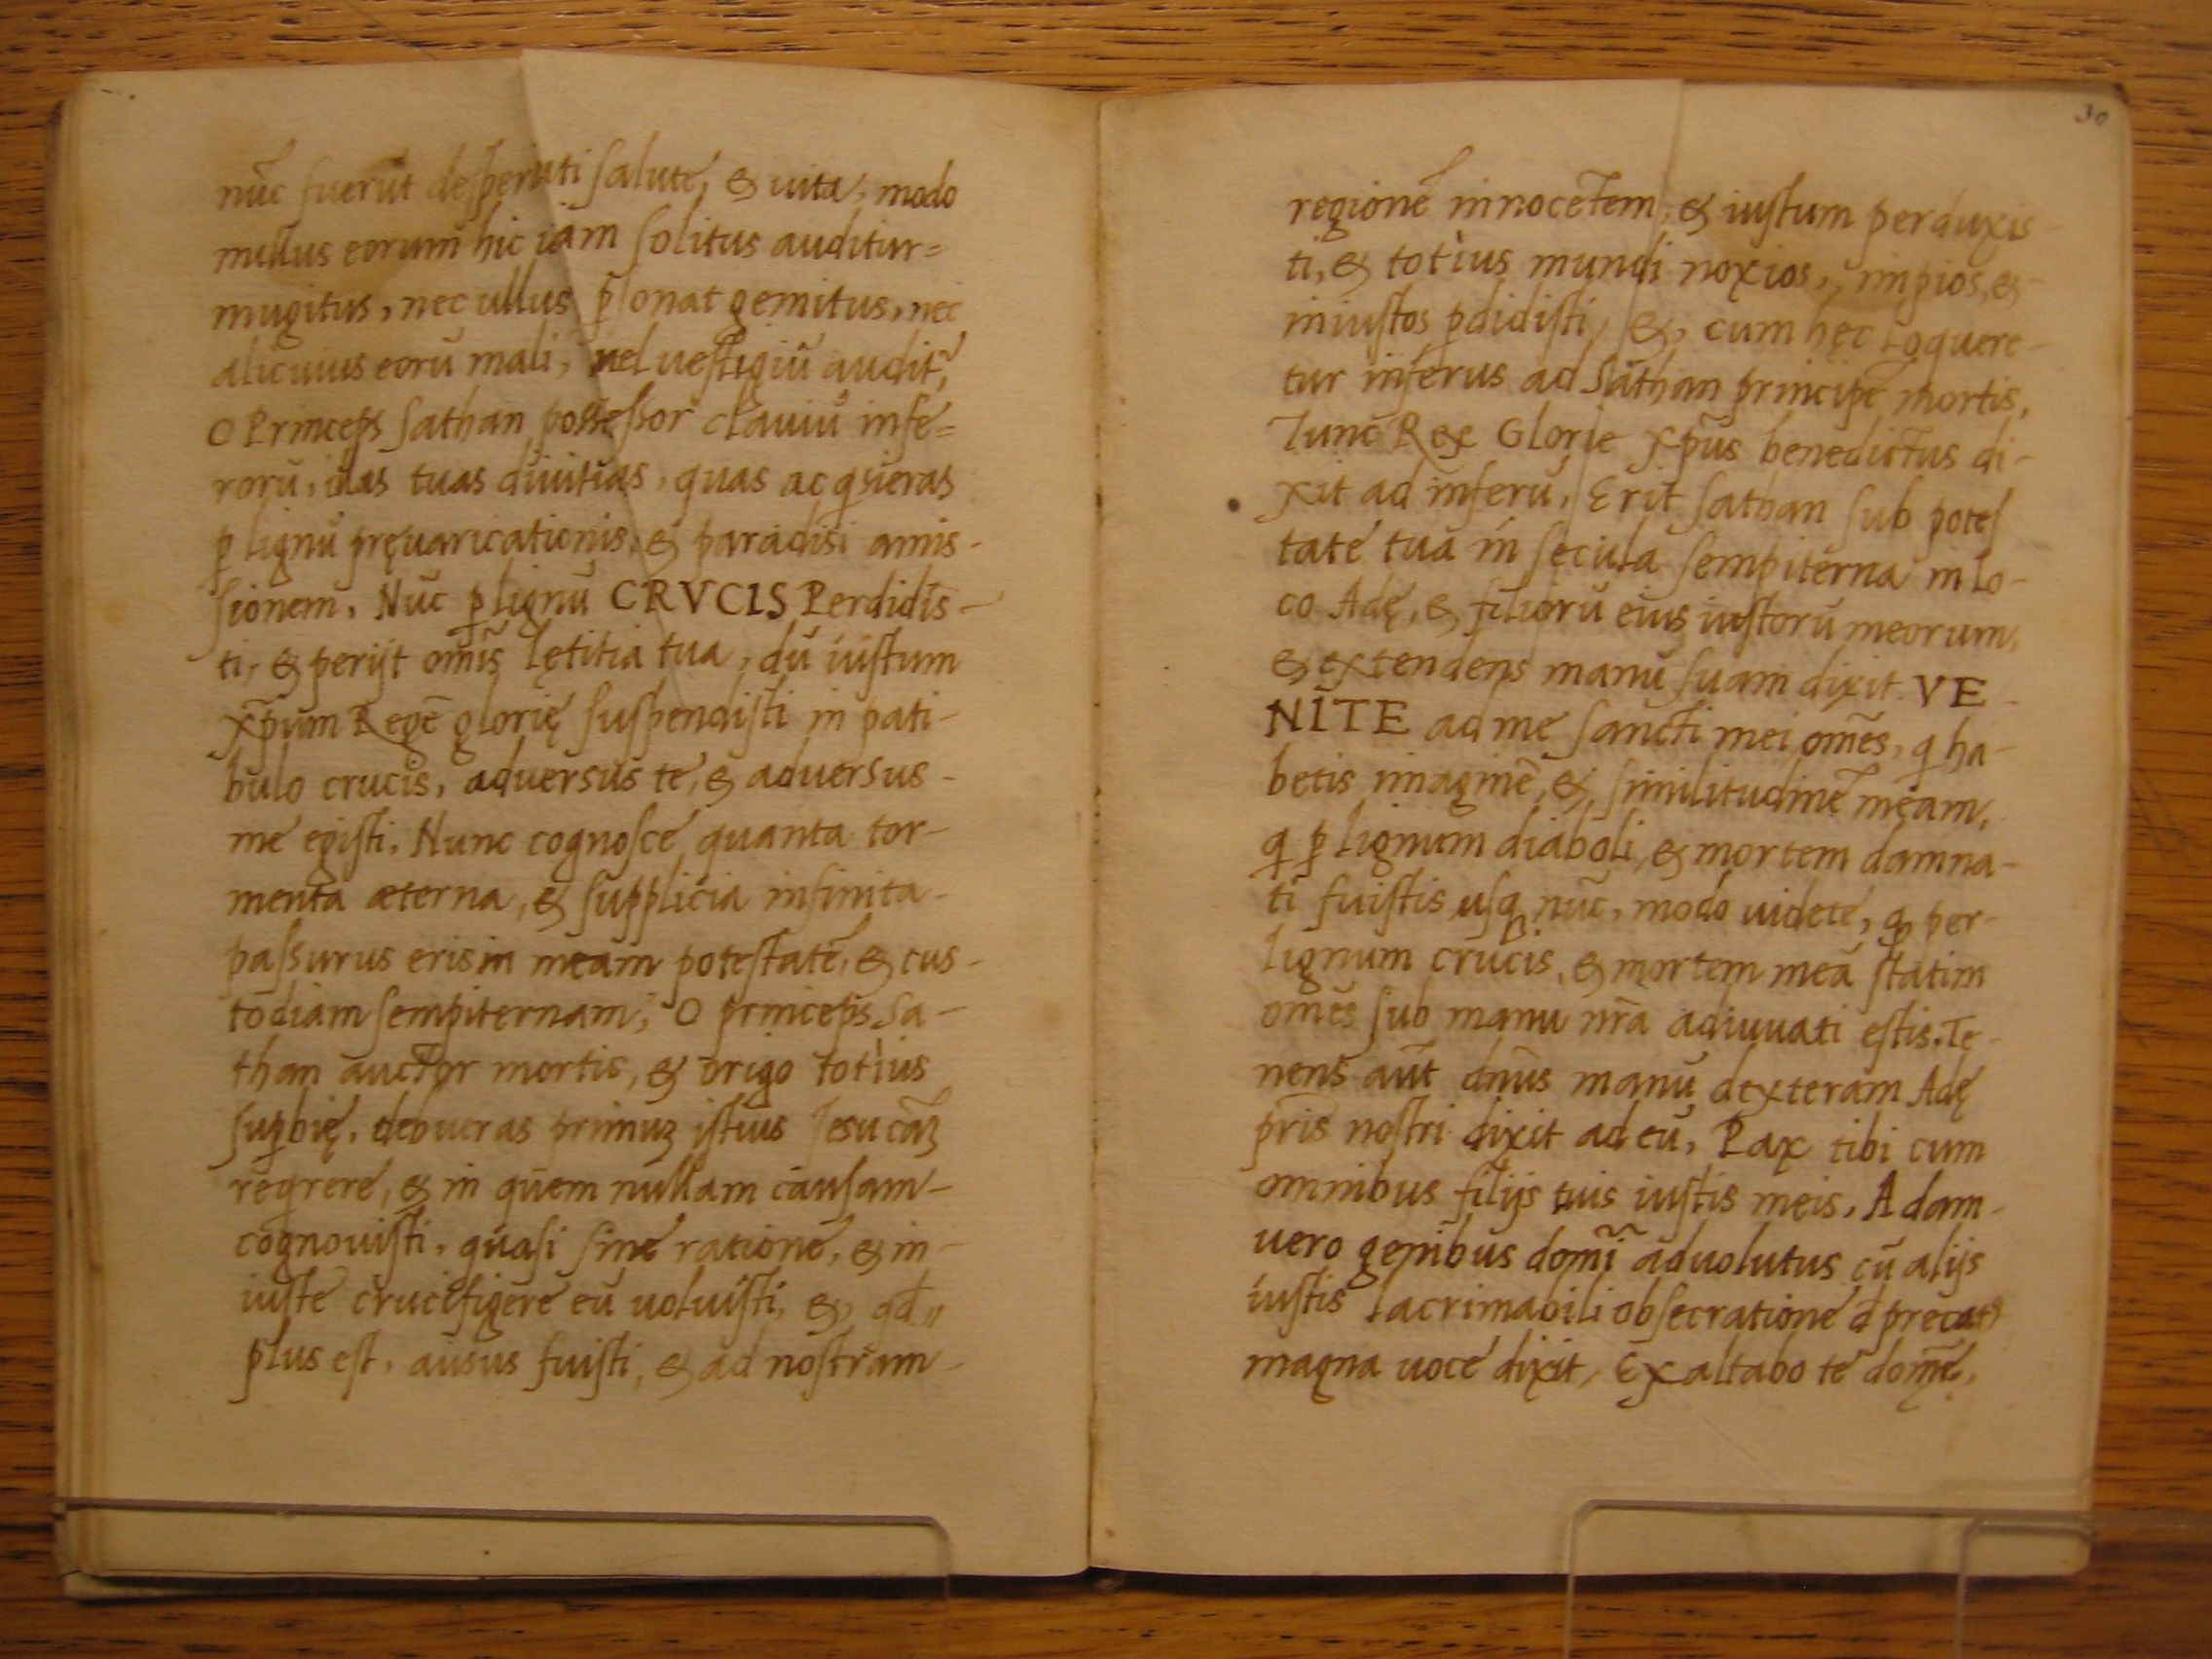 nũc fuerũt desperati salute, & uita, modo
nullus eorum hic iam solitus auditur=
mugitus, nec ullus p̃sonat gemitus, nec
alicuius eorũ mali, uel uestigiũ audit̃,
O Princeps sathan possessor clauiũ infe=
rorũ, illas tuas diuitias, quas acq̃sieras
p̱ lignũ pręuaricationis, & paradisi amis-
sionem. Nũc p̱ lignũ CRVCIS Perdidis-
ti, & perijt om̃is lętitia tua, dũ iustum
xp̃um Regẽ glorię suspendisti in pati-
bulo crucis, aduersus te, & aduersus-
me egisti. Nunc cognosce quanta tor-
menta æterna, & supplicia infinita-
passurus eris in meam potestatẽ, & cus-
todiam sempiternam; O princeps Sa-
than auctor mortis, & origo totius
sup̱bię, debueras primuꝫ istius Iesu cãꝫ
reqrere, & in quem nullam causam-
cognouisti, quasi sine ratione, & in-
iuste crucifigere eũ uoluisti, & qđ„
plus est, ausus fuisti, & ad nostram-
30
regionẽ innocẽtem, & iustum perduxis-
ti, & totius mundi noxios, impios, &
iniustos p̱didisti, & cum hęc loquere-
tur inferus ad Sathan principẽ mortis,
Tunc Rex Glorie xp̃us benedictus di-
xit ad inferũ, Erit sathan sub potes
tate tua in secula sempiterna in lo-
co Adę, & filiorũ eius iustorũ meorum,
& extendens manũ suam dixit. VE-
NITE ad me sancti mei om̃es, q ha-
betis imaginẽ, & similitudinẽ meam,
q p̱ lignum diaboli, & mortem damna-
ti fuistis usq nũc, modo uidete, ꝙ per-
lignum crucis, & mortem meã statim
om̃es sub manu nr̃a adiuuati estis. Te-
nens aũt dñus manũ dexteram Adę
pr̃is nostri dixit ad eũ, Pax tibi cum
omnibus filijs tuis iustis meis, Adam-
uero genibus domĩ aduolutus cũ alijs
iustis lacrimabili obsecratione đprecatꝰ
magna uoce dixit, Exaltabo te domẽ,